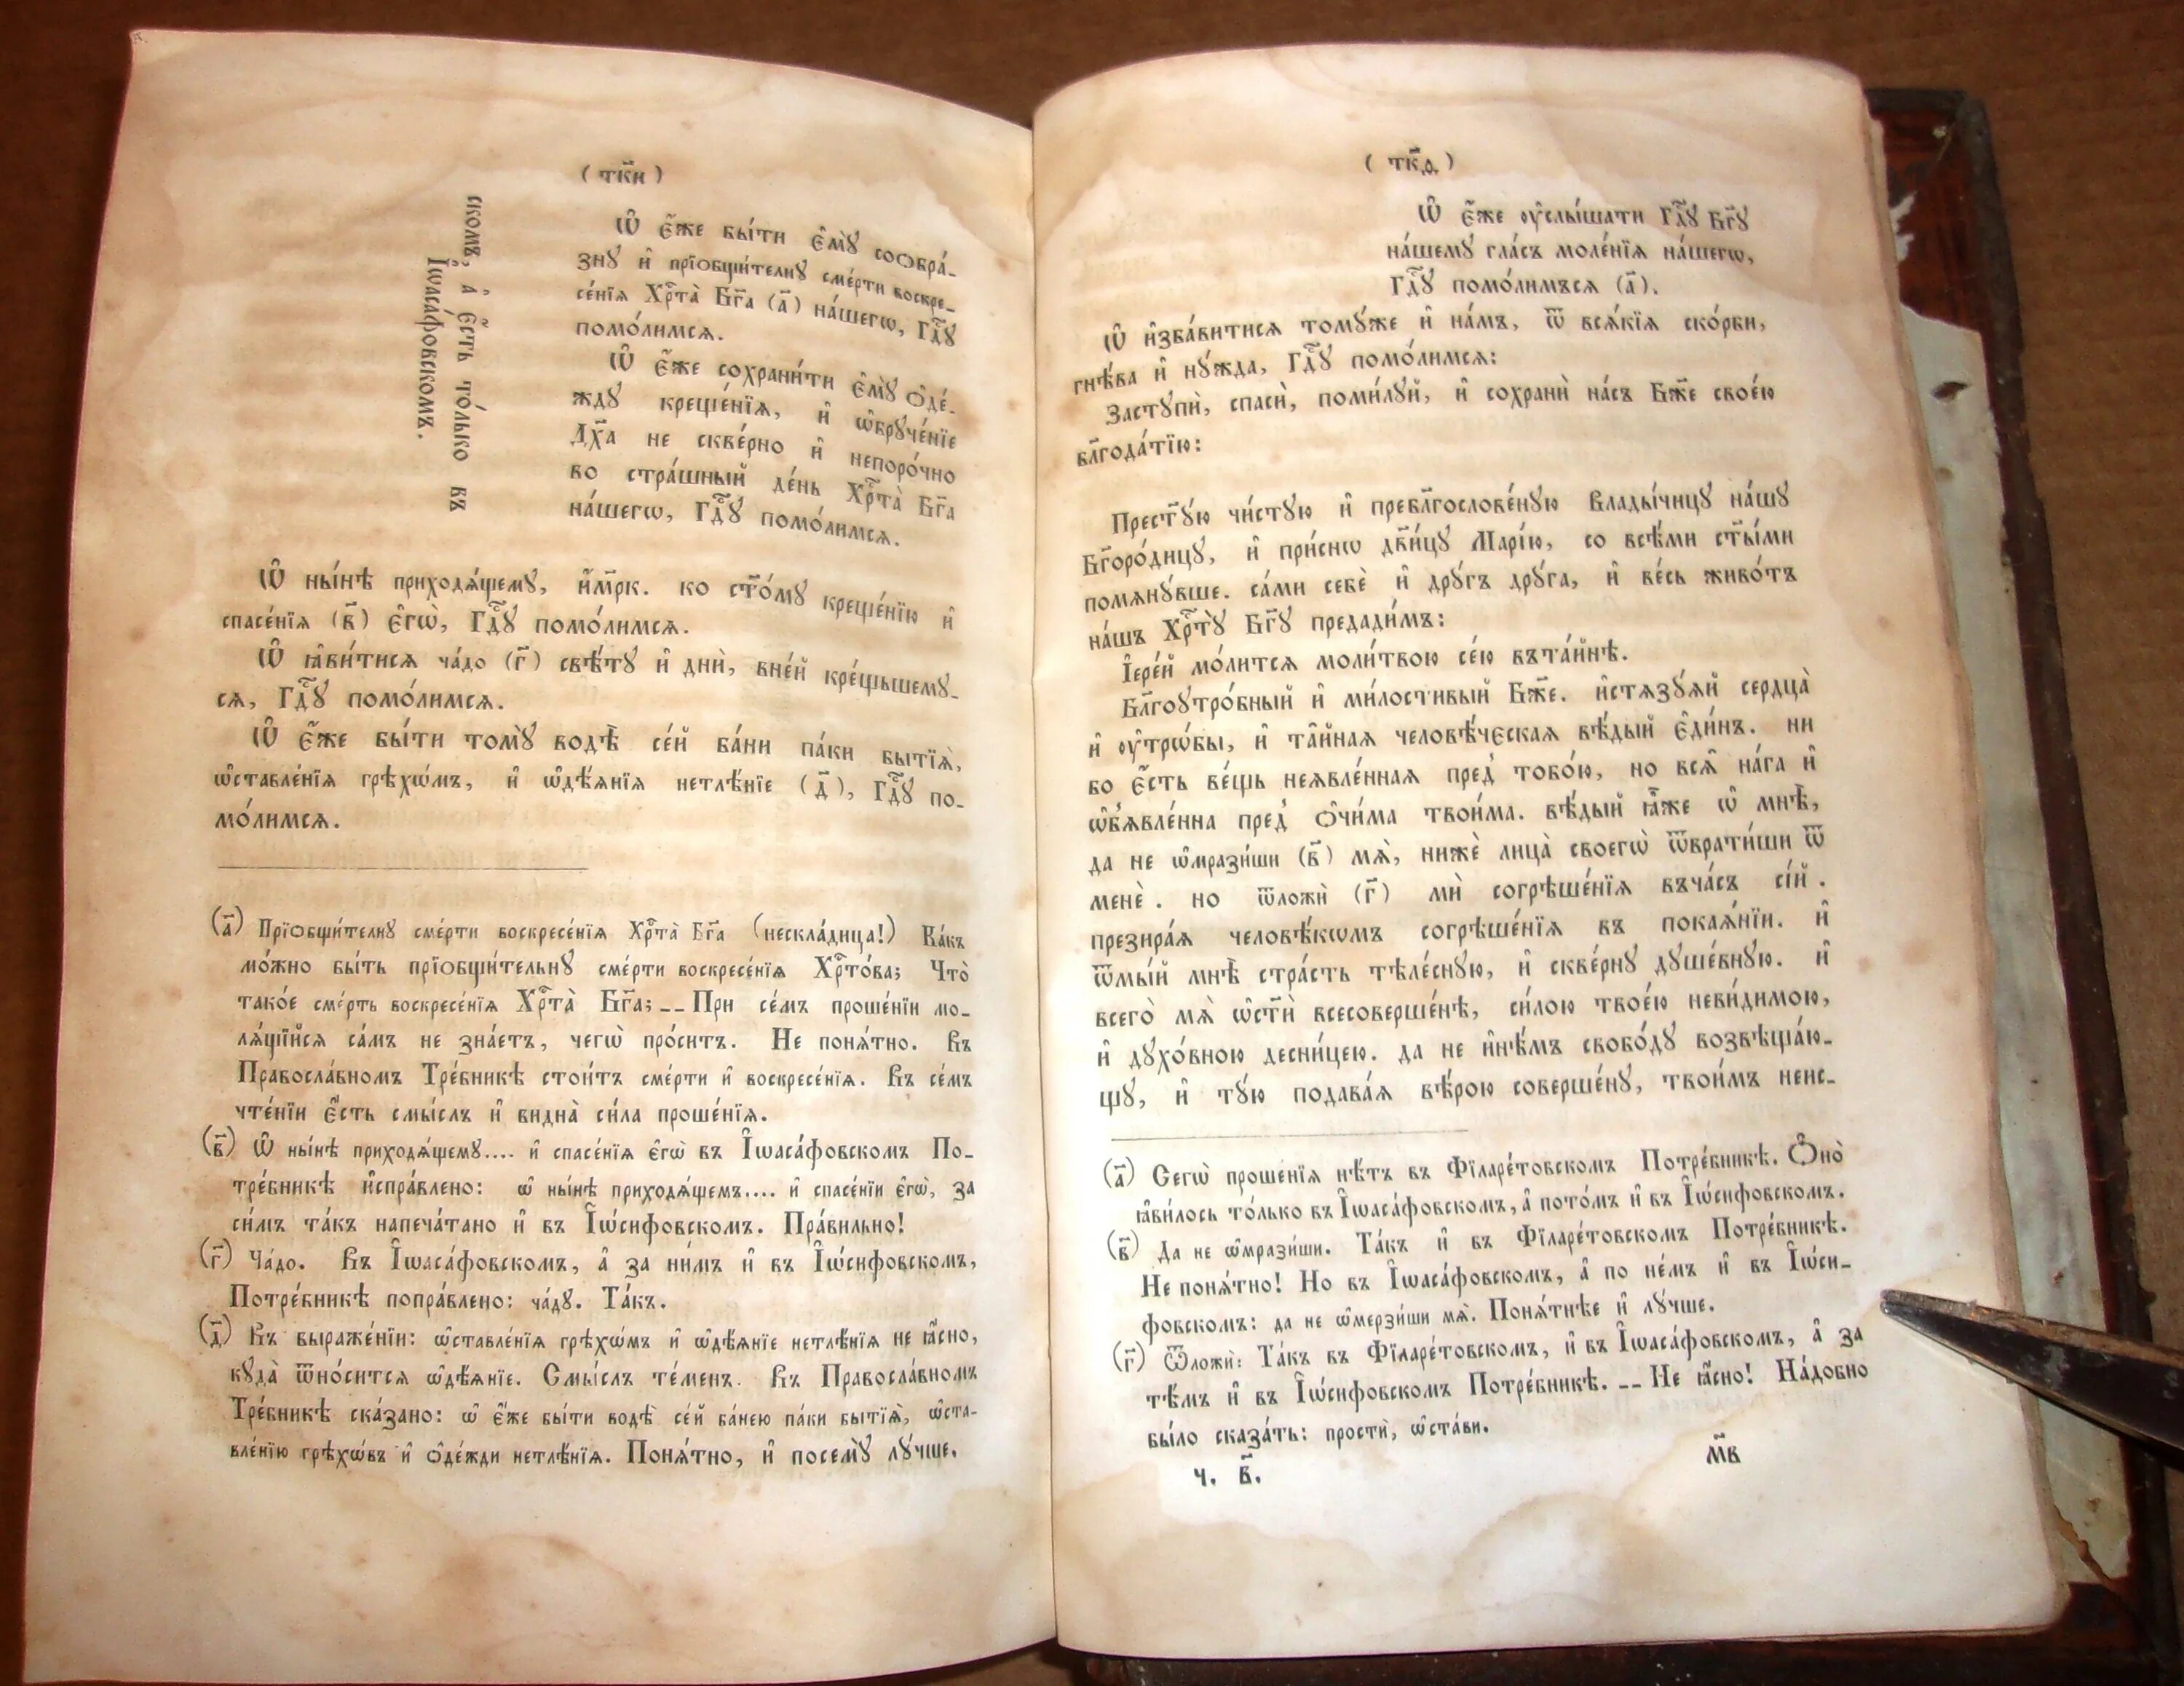 ( тк҃и )
скомъ, а҆ є҆́сть то́лько въ
І҆ѡаса́фовскомъ.
Ѡ҆ є҆́же бы́ти є҆мꙋ̀ соѻбра́-
знꙋ и҆ прїѻбщи́телнꙋ сме́рти воскре-
се́нїѧ Хрⷭ҇та̀ Бг҃а (а҃) на́шегѡ, Гдⷭ҇ꙋ
помо́лимсѧ.
Ѡ҆ є҆́же сохрани́ти є҆мꙋ̀ ѻ҆де́-
ждꙋ креще́нїѧ, и҆ ѡ҆брꙋче́нїе
Дх҃а не скве́рно и҆ непоро́чно
во стра́шный де́нь Хрⷭ҇та̀ Бг҃а
на́шегѡ, Гдⷭ҇ꙋ помо́лимсѧ.
Ѡ҆ ны́нѣ приходѧ́щемꙋ, и҆́м҃рк. ко ст҃о́мꙋ креще́нїю и҆
спасе́нїѧ (в҃) є҆гѡ̀, Гдⷭ҇ꙋ помо́лимсѧ.
Ѡ҆ ꙗ҆ви́тисѧ ча́до (г҃) свѣ́тꙋ и҆ днѝ, вне́й кре́щьшемꙋ-
сѧ, Гдⷭ҇ꙋ помо́лимсѧ.
Ѡ҆ є҆́же бы́ти томꙋ̀ водѣ̀ се́й ба́ни па́ки бытїѧ̀,
ѡ҆ставле́нїѧ грѣхѡ́мъ, и҆ ѡ҆дѣ́ѧнїѧ нетлѣ́нїе (д҃), Гдⷭ҇ꙋ по-
мо́лимсѧ.
(а҃) Прїѻбщи́телнꙋ сме́рти воскресе́нїѧ Хрⷭ҇та̀ Бг҃а (нескла́дица!) Ка́къ
мо́жно бы́ть прїѻбщи́тельнꙋ сме́рти воскресе́нїѧ Хрⷭ҇то́ва; Что̀
тако́е сме́рть воскресе́нїѧ Хрⷭ҇та̀ Бг҃а; -- При се́мъ проше́нїи мо-
лѧ́щїйсѧ са́мъ не зна́етъ, чегѡ̀ про́ситъ. Не понѧ́тно. Въ
Правосла́вномъ Тре́бникѣ стои́тъ сме́рти и҆ воскресе́нїѧ. Въ се́мъ
чте́нїи є҆́сть смы́слъ и҆ видна̀ си́ла проше́нїѧ.
(в҃) Ѡ҆ ны́нѣ приходѧ́щемꙋ.... и҆ спасе́нїѧ є҆гѡ̀ въ І҆ѡаса́фовскомъ По-
тре́бникѣ и҆спра́влено: ѡ҆ ны́нѣ приходѧ́щемъ.... и҆ спасе́нїи є҆гѡ̀, за
си́мъ та́къ напеча́тано и҆ въ І҆ѡ́сифовскомъ. Пра́вильно!
(г҃) Ча́до. Въ І҆ѡаса́фовскомъ, а҆ за ни́мъ и҆ въ І҆ѡ́сифовскомъ,
Потре́бникѣ попра́влено: ча́дꙋ. Та́къ.
(д҃) Въ выраже́нїи: ѡ҆ставле́нїѧ грѣхѡ́мъ и҆ ѡ҆дѣ́ѧнїе нетлѣ́нїѧ не ꙗ҆́сно,
кꙋда̀ ѿно́ситсѧ ѡ҆дѣ́ѧнїе. Смы́слъ те́менъ. Въ Правосла́вномъ
Тре́бникѣ ска́зано: ѡ҆ є҆́же бы́ти водѣ̀ се́й ба́нею па́ки бытїѧ̀, ѡ҆ста-
вле́нїю грѣхѡ́въ и҆ ѻ҆де́жди нетлѣ́нїѧ. Понѧ́тно, и҆ посемꙋ̀ лꙋ́чше.
( тк҃ѳ )
Ѡ҆ є҆́же ᲂу҆слы́шати Гдⷭ҇ꙋ Бг҃ꙋ
на́шемꙋ гла́съ моле́нїѧ на́шегѡ,
Гдⷭ҇ꙋ помо́лимъсѧ (а҃).
Ѡ҆ и҆зба́витисѧ томꙋ́же и҆ на́мъ, ѿ всѧ́кїѧ ско́рби,
гнѣ́ва и҆ нꙋ́жда, Гдⷭ҇ꙋ помо́лимсѧ:
Застꙋпѝ, спасѝ, поми́лꙋй, и҆ сохранѝ на́съ Бж҃е свое́ю
бл҃года́тїю:
Прест҃ꙋ́ю чи́стꙋю и҆ пребл҃гослове́нꙋю Влады́чицꙋ на́шꙋ
Бг҃оро́дицꙋ, и҆ при́снѡ дв҃и́цꙋ Марі́ю, со всѣ́ми ст҃ы́ми
помѧнꙋ́вше. са́ми себѐ и҆ дрꙋ́гъ дрꙋ́га, и҆ ве́сь живо́тъ
на́шъ Хрⷭ҇тꙋ̀ Бг҃ꙋ предади́мъ:
І҆ере́й мо́литсѧ моли́твою се́ю въта́йнѣ.
Бл҃гоутро́бный и҆ ми́лостивый Бж҃е. и҆стѧзꙋ́ѧй сердца̀
и҆ ᲂу҆трѡ́бы, и҆ та̑йнаѧ человѣ́ческаѧ вѣ́дый є҆ди́нъ. ни
бо є҆́сть ве́щь неѧвле́ннаѧ пред̾ тобо́ю, но всѧ̑ на́га и҆
ѡ҆б̾ѧвле́нна пред̾ ѻ҆чи́ма твои́ма. вѣ́дый ꙗ҆́же ѡ҆ мнѣ̀,
да не ѡ҆мрази́ши (в҃) мѧ̀, нижѐ лица̀ своегѡ̀ ѿврати́ши ѿ
менѐ. но ѿложѝ (г҃) мѝ согрѣше́нїѧ въча́съ сі́й.
презира́ѧ человѣ́кѡмъ согрѣше́нїѧ въ покаѧ́нїи. и҆
ѿмы́й мнѣ̀ стра́сть тѣле́снꙋю, и҆ скве́рнꙋ дꙋше́внꙋю. и҆
всего̀ мѧ̀ ѡ҆ст҃ѝ всесоверше́нѣ, си́лою твое́ю неви́димою,
и҆ дꙋхо́вною десни́цею. да не и҆нѣ́мъ свобо́дꙋ возвѣща́ю-
щꙋ, и҆ тꙋ́ю подава́ѧ вѣ́рою соверше́нꙋ, твои́мъ неис-
(а҃) Сегѡ̀ проше́нїѧ нѣ́тъ въ Фїларе́товскомъ Потре́бникѣ. Ѻ҆но̀
ꙗ҆ви́лось то́лько въ І҆ѡаса́фовскомъ, а҆ пото́мъ и҆ въ І҆ѡ́сифовскомъ.
(в҃) Да не ѡ҆мрази́ши. Та́къ и҆ въ Фїларе́товскомъ Потре́бникѣ.
Не понѧ́тно! Но въ І҆ѡаса́фовскомъ, а҆ по не́мъ и҆ въ І҆ѡ́си-
фовскомъ: да не ѡ҆мерзи́ши мѧ̀. Понѧ́тнѣе и҆ лꙋ́чше.
(г҃) Ѿложѝ: Та́къ въ Фїларе́товскомъ, и҆ въ І҆ѡаса́фовскомъ, а҆ за
тѣ́мъ и҆ въ І҆ѡ́сифовскомъ Потре́бникѣ. -- Не ꙗ҆́сно! На́добно
бы́ло сказа́ть: простѝ, ѡ҆ста́ви.
ч. в҃.
м҃в